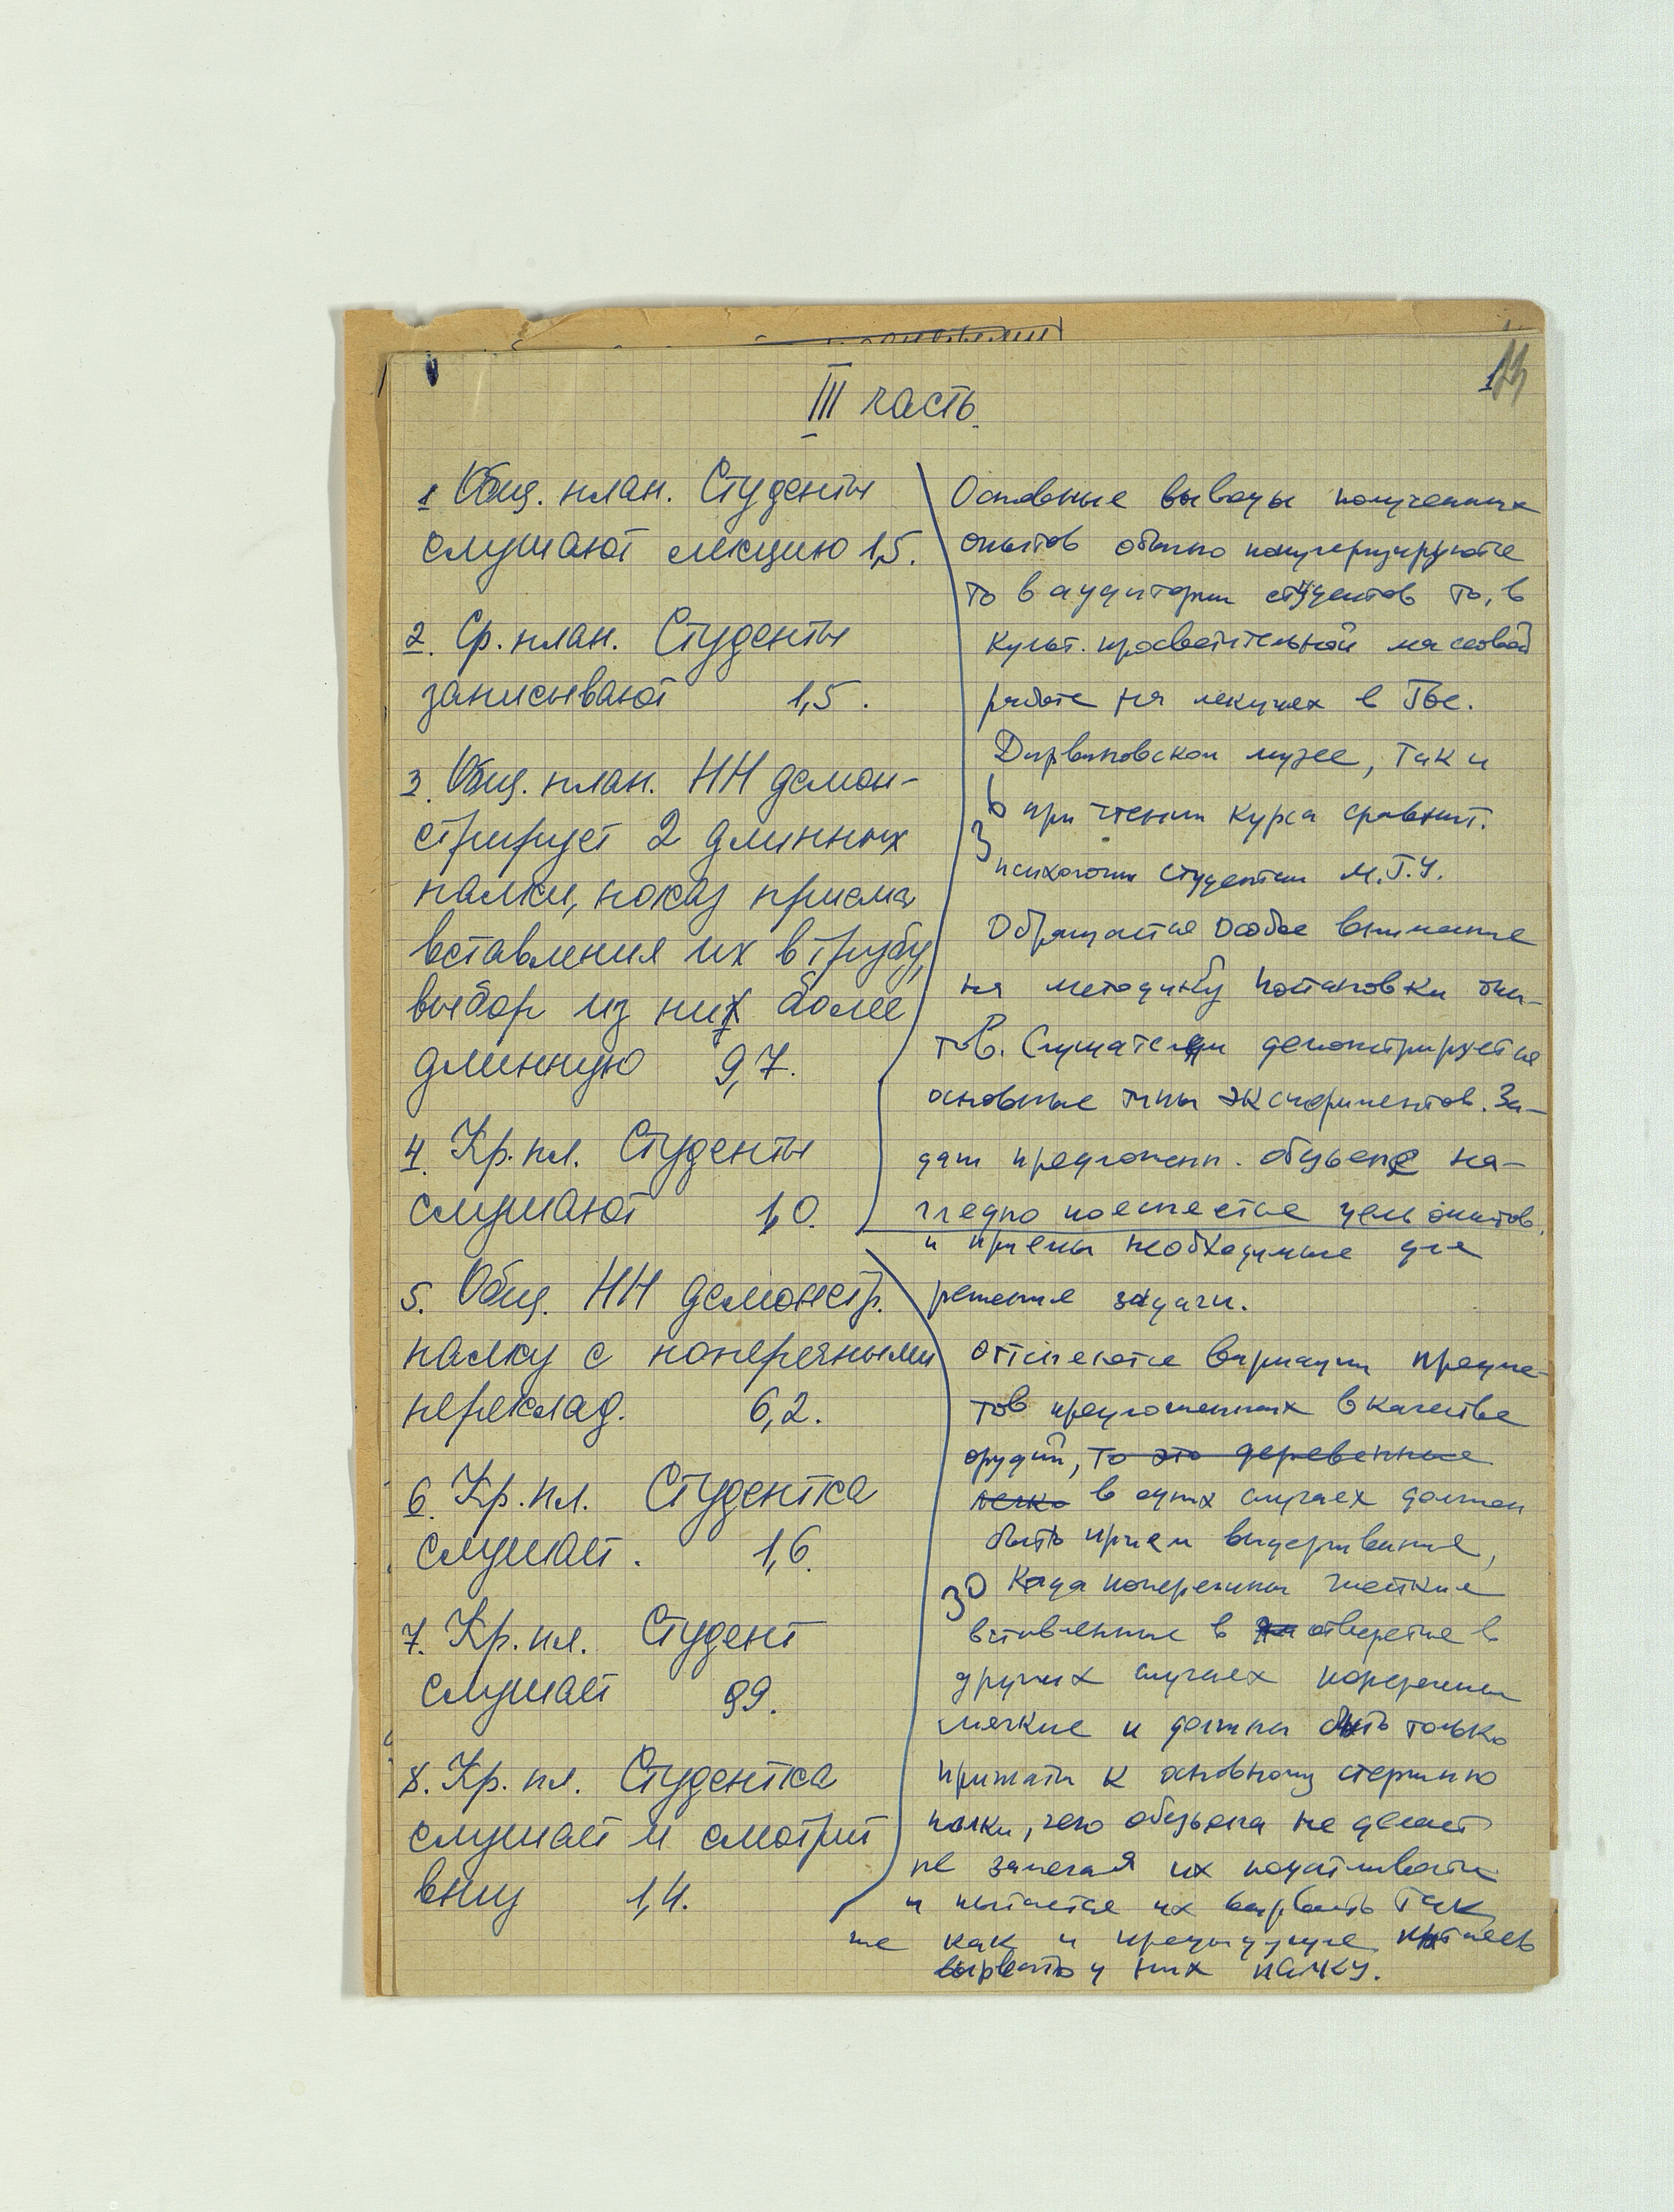 13
III часть
1 Общ. план. Студенты
слушают лекцию 1,5.
2. Ср. план. Студенты
записывают 1,5.
3. Общ. план. НН демон-
стрирует 2 длинных
палки, показ приема
вставления их в трубу,
выбор из них более
длинную 9,7.
4. Кр. пл. Студенты
слушают 1,0.
5. Общ. НН демонстр.
палку с поперечными
переклад. 6,2.
6. Кр. пл. Студентка
слушает. 1,6.
7. Кр. пл. Студент
слушает 99.
8. Кр. пл. Студентка
слушает и смотрит
вниз 1,4.
Основные выводы полученных
опытов обычно популяризируются
то в аудитории студентов то, в
культ. просветительной массовой
работе на лекциях в Гос.
Дарвиновском музее, так и
в при чтении курса сравнит.
психологии студентам М.Г.У.
Обращается особое внимание
на методику постановки опы-
тов. Слушателям демонстрируется
основные типы экспериментов. За-
дач предложенн. обезьяне на-
глядно поясняется цель опытов
и приемы необходимые для
решения задачи.
Отмечаются вариации предме-
тов предложенных в качестве
орудий, то это деревянные
в одних случаях должен
быть прием выдергивания,
Когда поперечины жесткие
вставленные в отверстие в
других случаях поперечины
мягкие и должны быть только
прижаты к основному стержню
палки, чего обезьяна не делает
не замечая их податливости
и пытается их вырвать так
же как и предыдущие пытаясь
вырвать у них палку.